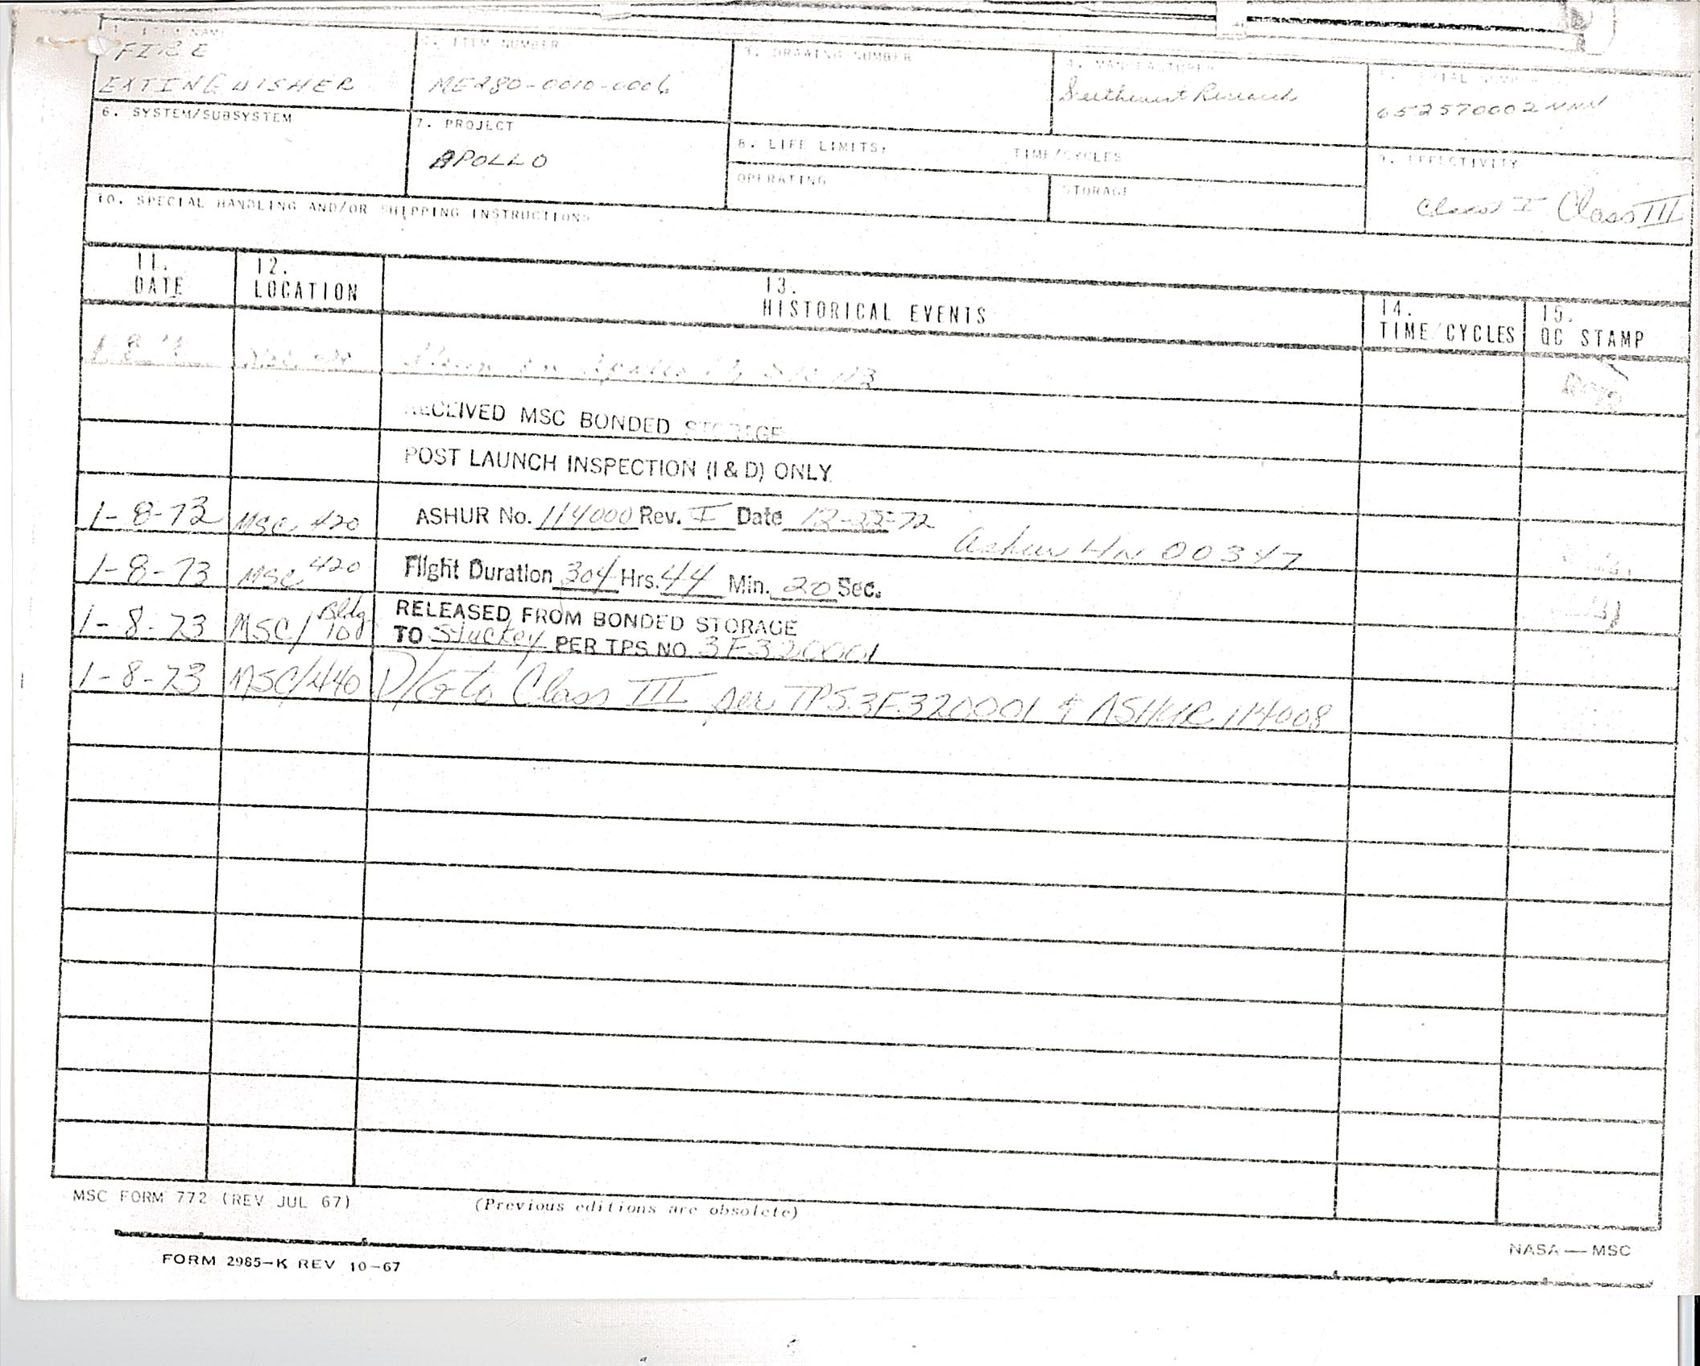 1. ITEM NAME
FIRE
EXTINGUISHER
2. ITEM NUMBER
ME280-0010-0006
3. DRAWING NUMBER
4. MANUFACTURER
Southwest Research
5. SERIAL NUMBER
6. SYSTEM/SUBSYSTEM
7. PROJECT
APOLLO
8. LIFE LIMITS: TIME/CYCLES
OPERATING
STORAGE
9. EFFECTIVITY
Class I Class III
10. SPECIAL HANDLING AND/OR SHIPPING INSTRUCTIONS
11.
DATE
12.
LOCATION
13.
HISTORICAL EVENTS
14.
TIME/CYCLES
15.
QC STAMP
RECEIVED MSC BONDED STORAGE
POST LAUNCH INSPECTION (I & D) ONLY
1-8-73 MSC 420 ASHUR No. 114000 Rev. I Date 12-22-72
Ashur HN 00347
1-8-73 MSC 420 Flight Duration 304 Hrs. 44 Min. 20 Sec.
1-8-73 MSC/Bldg 10 RELEASED FROM BONDED STORAGE
TO Stuckey PER TPS NO. 3F320001
1-8-73 MSC/440 D/G to Class III per TPS 3F320001 & ASHUR 114008
MSC FORM 772 (REV JUL 67) (Previous editions are obsolete)
NASA — MSC
FORM 2985-K REV 10-67